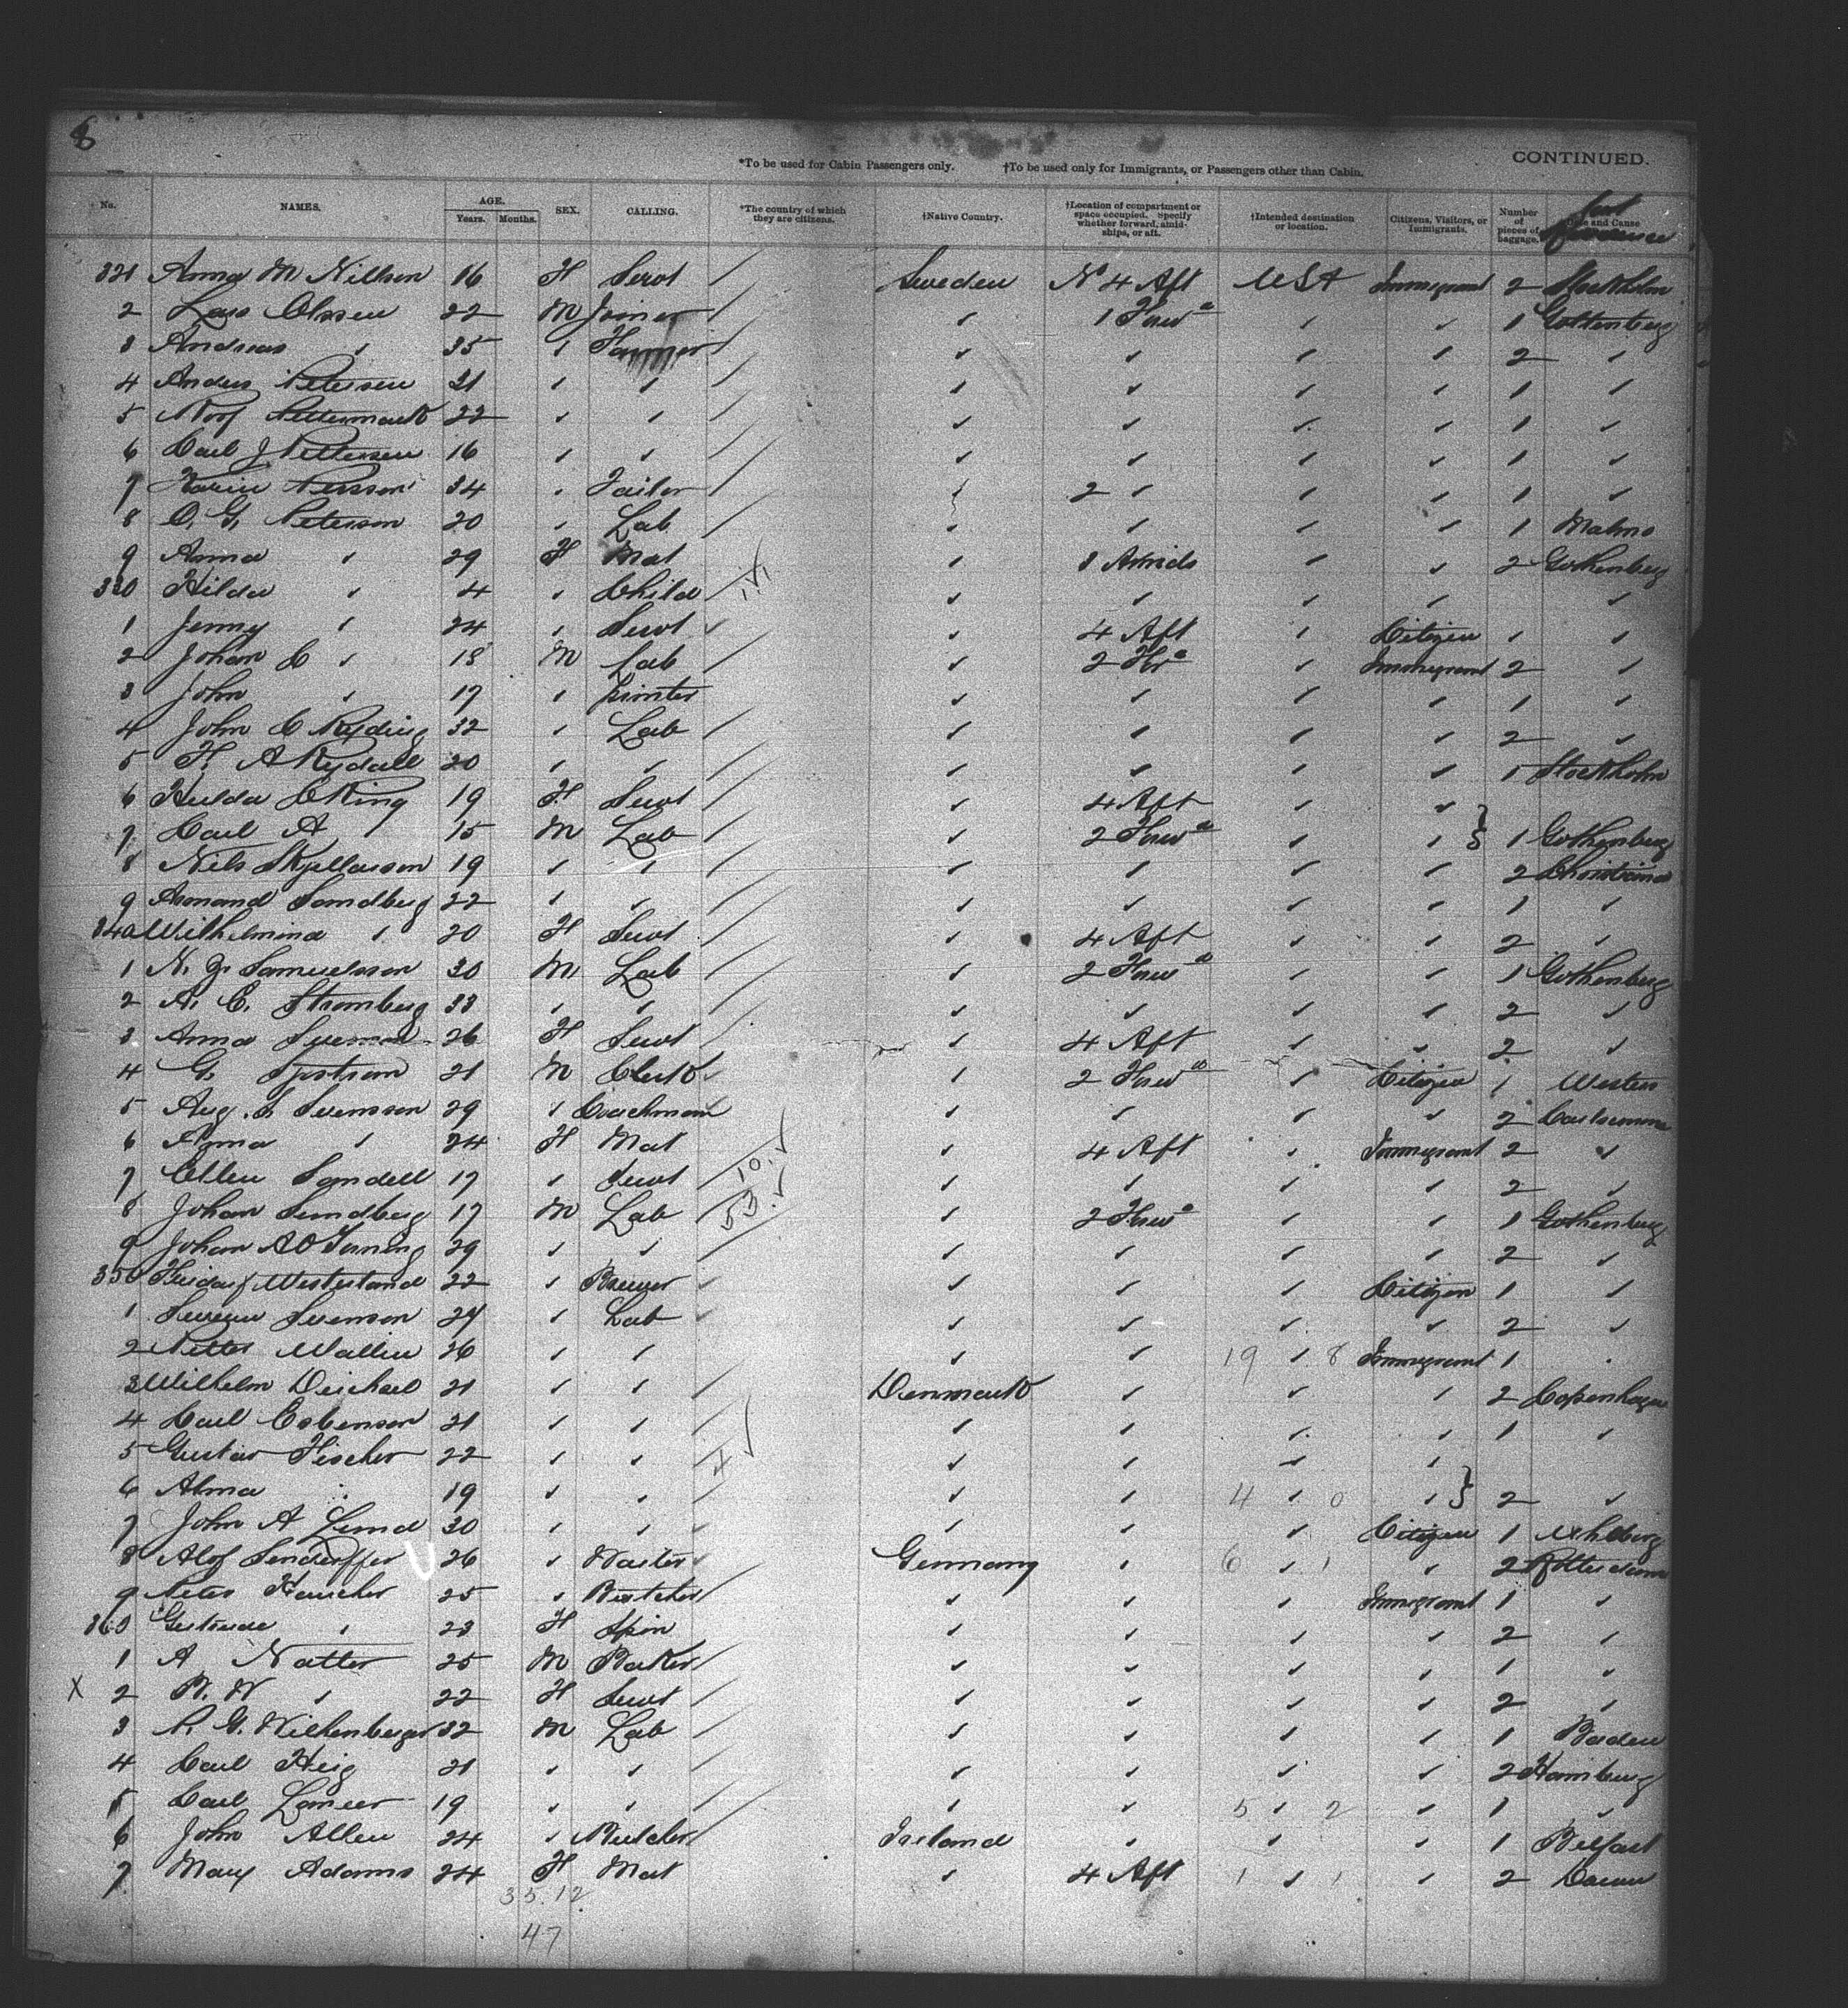 8
*To be used for Cabin Passengers only. †To be used only for Immigrants, or Passengers other than Cabin. CONTINUED.
No. NAMES. AGE. Years. Months. SEX. CALLING. *The country of which they are citizens. †Native Country. †Location of compartment or space occupied. Specify whether forward, amidships, or aft. †Intended destination or location. Citizens, Visitors, or Immigrants. Number of pieces of baggage. Date and Cause
321 Anna M Nillson 16 F Servt Sweden No 4 Aft USA Immigrant 2 Stockholm
2 Lars Olssen 22 M Joiner ✓ 1 Forwd ✓ ✓ 1 Gottenberg
3 Andreas ✓ 35 ✓ Farmer ✓ ✓ ✓ ✓ 2 ✓
4 Anders Petersen 31 ✓ ✓ ✓ ✓ ✓ ✓ 1 ✓
5 22 ✓ ✓ ✓ ✓ ✓ ✓ 1 ✓
6 Carl J Pettersen 16 ✓ ✓ ✓ ✓ ✓ ✓ 1 ✓
7 Karin Persson 34 ✓ Tailor ✓ 2 ✓ ✓ ✓ 1 ✓
8 O. G. Peterson 20 ✓ Lab ✓ ✓ ✓ ✓ 1 Malmo
9 Anna ✓ 29 F Mat ✓ 3 Amids ✓ ✓ 2 Gothenberg
330 Hilda ✓ 4 ✓ Child ✓ ✓ ✓ ✓ ✓
1 Jenny ✓ 24 ✓ Servt ✓ 4 Aft ✓ Citizen ✓ ✓
2 Johan C ✓ 18 M Lab ✓ 2 Ford ✓ Immigrant 2 ✓
3 John ✓ 17 ✓ printer ✓ ✓ ✓ ✓ 1 ✓
4 John C Ryding 32 ✓ Lab ✓ ✓ ✓ ✓ 2 ✓
5 F. A Rydall 20 ✓ ✓ ✓ ✓ ✓ ✓ 1 Stockholm
6 Hulda C King 19 F Servt ✓ 4 Aft ✓ ✓
7 Carl A 15 M Lab ✓ 2 Forwd ✓ ✓ } 1 Gothenberg
8 Nils 19 ✓ ✓ ✓ ✓ ✓ ✓ 2 Christiana
9 Armand Sandberg 22 ✓ ✓ ✓ ✓ ✓ ✓ 1 ✓
340 Wilhelmina ✓ 20 F Servt ✓ 4 Aft ✓ ✓ 2 ✓
1 N. Samuelsson 30 M Lab ✓ 2 Forwd ✓ ✓ 1 Gothenberg
2 A. C. Stromberg 33 ✓ ✓ ✓ ✓ ✓ ✓ 2 ✓
3 Anna 26 F Servt ✓ 4 Aft ✓ ✓ 2 ✓
4 G. Sjostrom 21 M Clerk ✓ 2 Forwd ✓ Citizen 1
5 Aug. S. Svensson 29 ✓ Coachman ✓ ✓ ✓ ✓ 2
6 Anna ✓ 24 F Mat 10 ✓ ✓ 4 Aft ✓ Immigrant 2 ✓
7 Ellen Sandell 17 ✓ Servt 53 ✓ ✓ ✓ ✓ ✓ 2 ✓
8 Johan Sundberg 17 M Lab ✓ 2 Forwd ✓ ✓ 1 Gothenberg
9 Johan A O 29 ✓ ✓ ✓ ✓ ✓ ✓ 2 ✓
350 Westerland 22 ✓ Brewer ✓ ✓ ✓ Citizen 1 ✓
1 Svenson 24 ✓ Lab ✓ ✓ ✓ ✓ 2 ✓
2 Wallin 26 ✓ ✓ ✓ ✓ 19 ✓ 8 Immigrant 1
3 Wilhelm Deichael 21 ✓ ✓ Denmark ✓ ✓ ✓ 2 Copenhagen
4 Carl Esbenson 21 ✓ ✓ ✓ ✓ ✓ ✓ 1 ✓
5 Gustav Fischer 22 ✓ ✓ 4 ✓ ✓ ✓ ✓ ✓
6 Alma ✓ 19 ✓ ✓ ✓ ✓ 4 ✓ 0 ✓ } 2 ✓
7 John A Lund 30 ✓ ✓ ✓ ✓ ✓ Citizen 1
8 Alof 26 ✓ Waiter Germany ✓ 6 ✓ 1 ✓ 2 Rotterdam
9 Peter Hauscher 25 ✓ Butcher ✓ ✓ ✓ Immigrant 1 ✓
360 Gertrude ✓ 23 F Spin ✓ ✓ ✓ ✓ 2 ✓
1 A Natter 25 M Baker ✓ ✓ ✓ ✓ 1 ✓
X 2 B. W ✓ 22 F Servt ✓ ✓ ✓ ✓ 2 ✓
3 P. G. Wilkenberger 32 M Lab ✓ ✓ ✓ ✓ 1 Baden
4 Carl Heig 21 ✓ ✓ ✓ ✓ ✓ ✓ 2 Hamburg
5 Carl 19 ✓ ✓ ✓ ✓ 5 ✓ 2 ✓ 1 ✓
6 John Allen 24 ✓ Butcher Ireland ✓ ✓ ✓ 1 Belfast
7 Mary Adams 24 F Mat ✓ 4 Aft 1 ✓ 1 ✓ 2
35.12
47